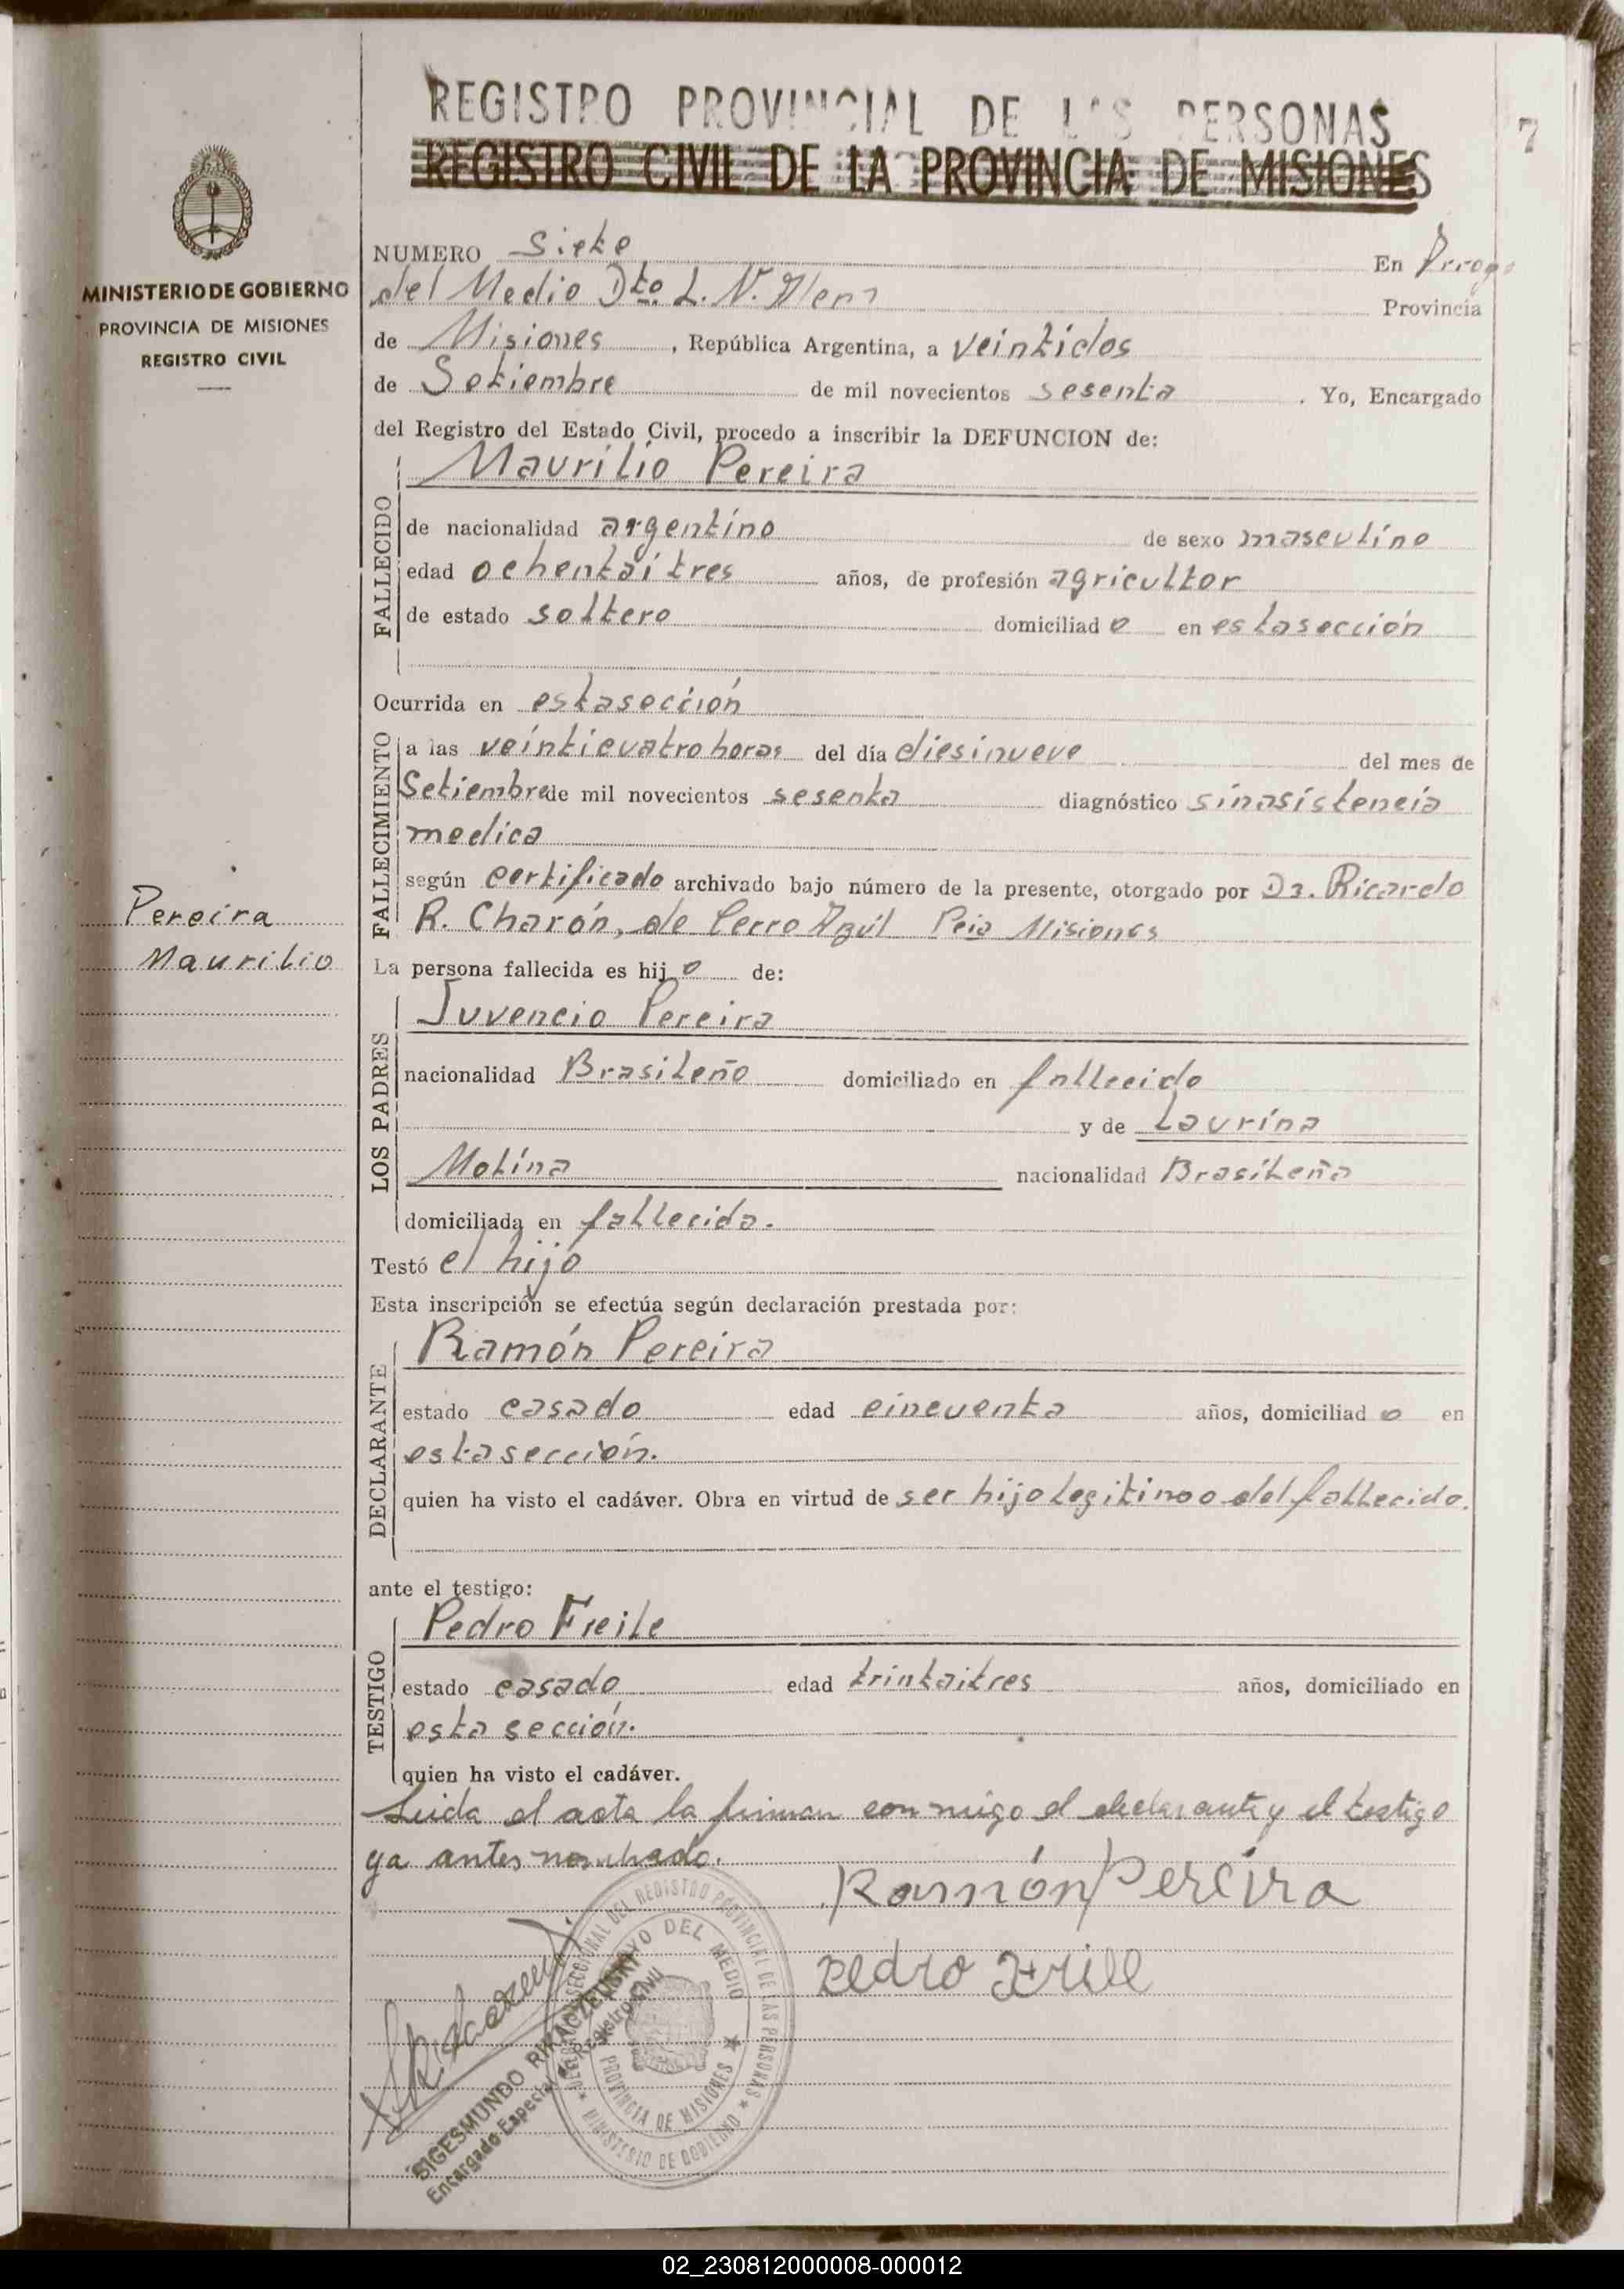 REGISTRO PROVINCIAL DE LAS PERSONAS
REGISTRO CIVIL DE LA PROVINCIA DE MISIONES
7
MINISTERIO DE GOBIERNO
PROVINCIA DE MISIONES
REGISTRO CIVIL
NUMERO Siete En Arroyo
del Medio Dto. L. N. Alem Provincia
de Misiones, República Argentina, a veintidos
de Setiembre de mil novecientos sesenta. Yo, Encargado
del Registro del Estado Civil, procedo a inscribir la DEFUNCION de:
Maurilio Pereira
FALLECIDO
de nacionalidad argentino de sexo masculino
edad ochentaitres años, de profesión agricultor
de estado soltero domiciliado en esta sección
Ocurrida en esta sección
FALLECIMIENTO
a las veinticuatro horas del día diesinueve del mes de
Setiembre de mil novecientos sesenta diagnóstico sin asistencia
medica
según certificado archivado bajo número de la presente, otorgado por Dr. Ricardo
R. Charón, de Cerro Azúl Pcia Misiones
Pereira
Maurilio
La persona fallecida es hijo de:
LOS PADRES
Juvencio Pereira
nacionalidad Brasileño domiciliado en fallecido
y de Laurína
Molína nacionalidad Brasileña
domiciliada en fallecida.
Testó el hijo
Esta inscripción se efectúa según declaración prestada por:
DECLARANTE
Ramón Pereira
estado casado edad cincuenta años, domiciliado en
esta sección.
quien ha visto el cadáver. Obra en virtud de ser hijo legitimo del fallecido.
ante el testigo:
TESTIGO
Pedro Freile
estado casado edad trintaitres años, domiciliado en
esta sección.
quien ha visto el cadáver.
Leida el acta la firman con migo el declarante y el testigo
ya antes nombrado.
Ramón Pereira
Pedro Freile
SIGESMUNDO RIKACZEWSKI
Encargado Especial de Registro Civil
SECCIONAL DEL REGISTRO PROVINCIAL DE LAS PERSONAS
MINISTERIO DE GOBIERNO
ARROYO DEL MEDIO
PROVINCIA DE MISIONES
02_230812000008-000012